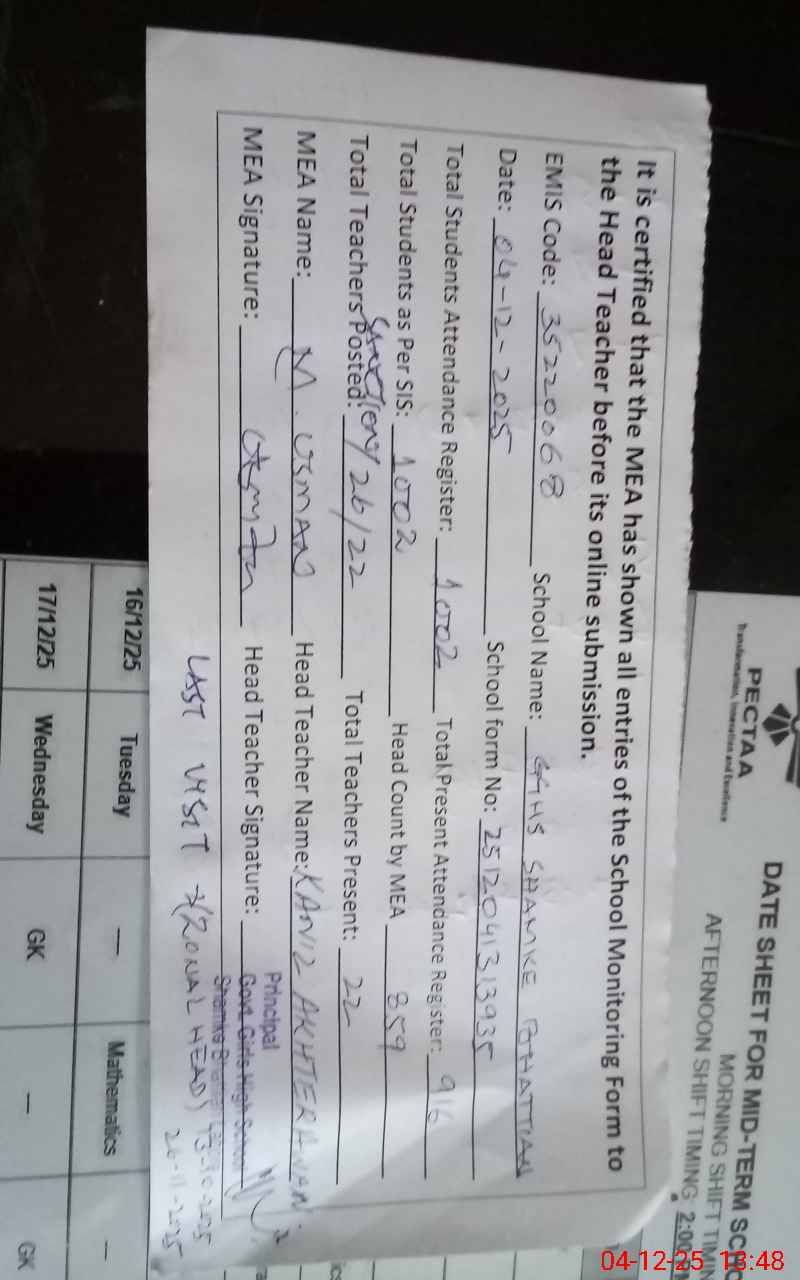 It is certified that the MEA has shown all entries of the School Monitoring Form to
the Head Teacher before its online submission.
EMIS Code: 35220068 School Name: GGHS SHAMKE BHATTIAN
Date: 04-12-2025 School form No: 2512041313935
Total Students Attendance Register: 1002 Total Present Attendance Register: 916
Total Students as Per SIS: 1002 Head Count by MEA 859
Total Teachers Posted: 26/22 Total Teachers Present: 22
MEA Name: M. USMAN Head Teacher Name: KANIZ AKHTER AWAN
MEA Signature: Head Teacher Signature:
Principal
Govt. Girls High School
LAST VISIT
(ZONAL HEAD)
26-11-2025
PECTAA
Transformation, Innovation and Excellence
DATE SHEET FOR MID-TERM SC
MORNING SHIFT TIMI
AFTERNOON SHIFT TIMING: 2:00
16/12/25 Tuesday — Mathematics —
17/12/25 Wednesday GK — GK
04-12-25 13:48